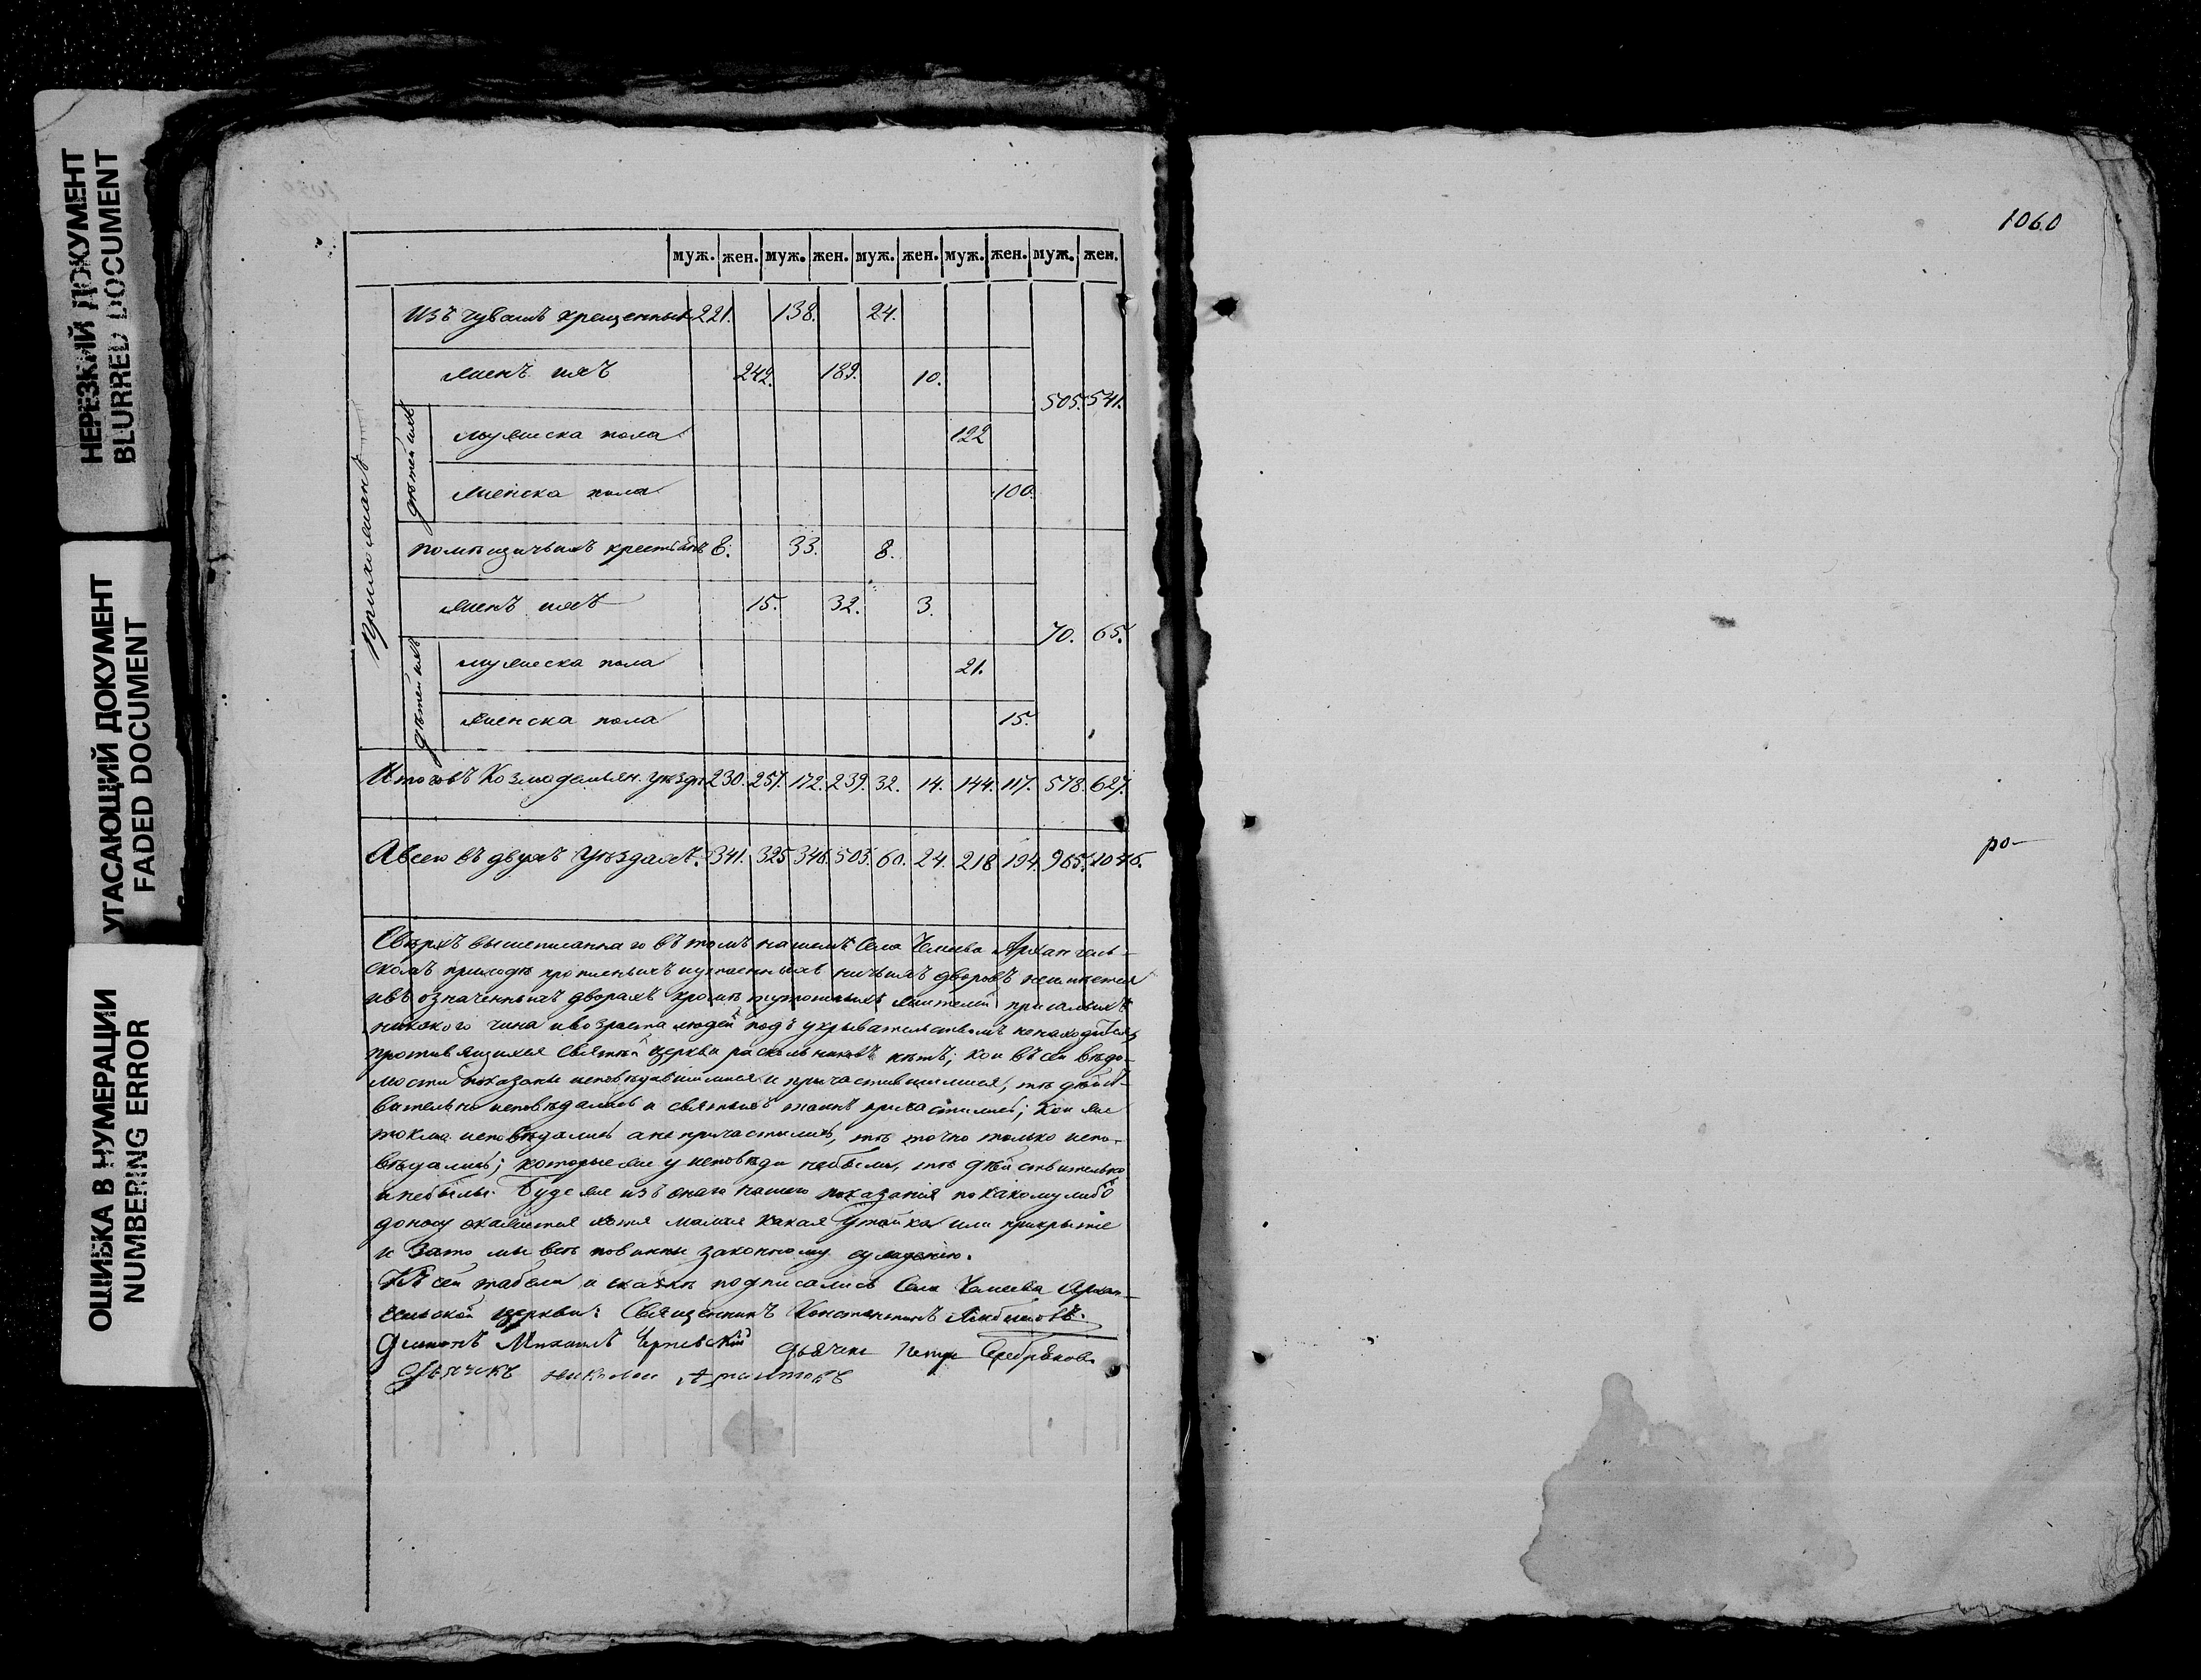 НЕРЕЗКИЙ ДОКУМЕНТ
BLURRED DOCUMENT
УГАСАЮЩИЙ ДОКУМЕНТ
FADED DOCUMENT
ОШИБКА В НУМЕРАЦИИ
NUMBERING ERROR
муж. жен. муж. жен. муж. жен. муж. жен. муж. жен.
Прихожанъ
изъ чувашъ крещенныхъ 221. 138. 24.
женъ ихъ 242. 189. 10.
505. 541.
дѣтей ихъ
мужеска пола 122
женска пола 100.
помѣщичьихъ крестьянъ 8. 33. 8.
женъ ихъ 15. 32. 3.
70. 65.
дѣтей ихъ
мужеска пола 21.
женска пола 15.
Итого въ Козмодемьян. уѣздѣ 230. 257. 172. 239. 32. 14. 144. 117. 578. 627.
А всего въ двухъ уѣздахъ. 341. 325 346. 503. 60. 24. 218 194. 965. 1046.
Сверхъ вышеписаннаго въ томъ нашемъ села Архангель-
скомъ приходѣ пропущенныхъ и утаенныхъ ничьихъ дворовъ неимѣется
и въ означенныхъ дворахъ кромѣ тутошныхъ жителей пришлыхъ
никакого чина и возраста людей подъ укрывательствомъ ненаходится,
противящихся святѣй церкви раскольниковъ нѣтъ; кои въ сей вѣдо-
мости показаны исповѣдавшимися и причастившимися, тѣ дѣйст-
вительно исповѣдались и святыхъ таинъ причастились; кои же
токмо исповѣдались а не причастились, тѣ точно только испо-
вѣдались; которые же у исповѣди небыли, тѣ дѣйствительно
и небыли. Буде же изъ онаго нашего показанія по какому либо
доносу окажется хотя малая какая утайка или прикрытіе
и за то мы всѣ повинны законному сужденію.
Къ сей табели и сказкѣ подписались села Архан-
гельской церкви: Священникъ Константинъ
Діаконъ Михаилъ дьячекъ Петръ Серебряковъ
Дьячекъ Николай
1060
ро-